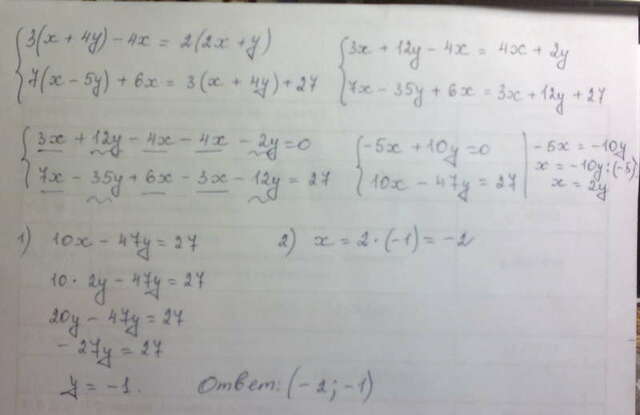 { 3(x + 4y) - 4x = 2(2x + y)
7(x - 5y) + 6x = 3(x + 4y) + 27
{ 3x + 12y - 4x = 4x + 2y
7x - 35y + 6x = 3x + 12y + 27
{ 3x + 12y - 4x - 4x - 2y = 0
7x - 35y + 6x - 3x - 12y = 27
{ -5x + 10y = 0
10x - 47y = 27
-5x = -10y
x = -10y : (-5)
x = 2y
1) 10x - 47y = 27
10 · 2y - 47y = 27
20y - 47y = 27
- 27y = 27
y = -1.
2) x = 2 · (-1) = -2
Ответ: (-2; -1)